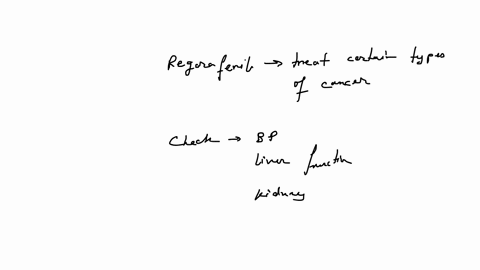 Regorafenib → treat certain types
of cancer
Check → BP
liver function
kidney